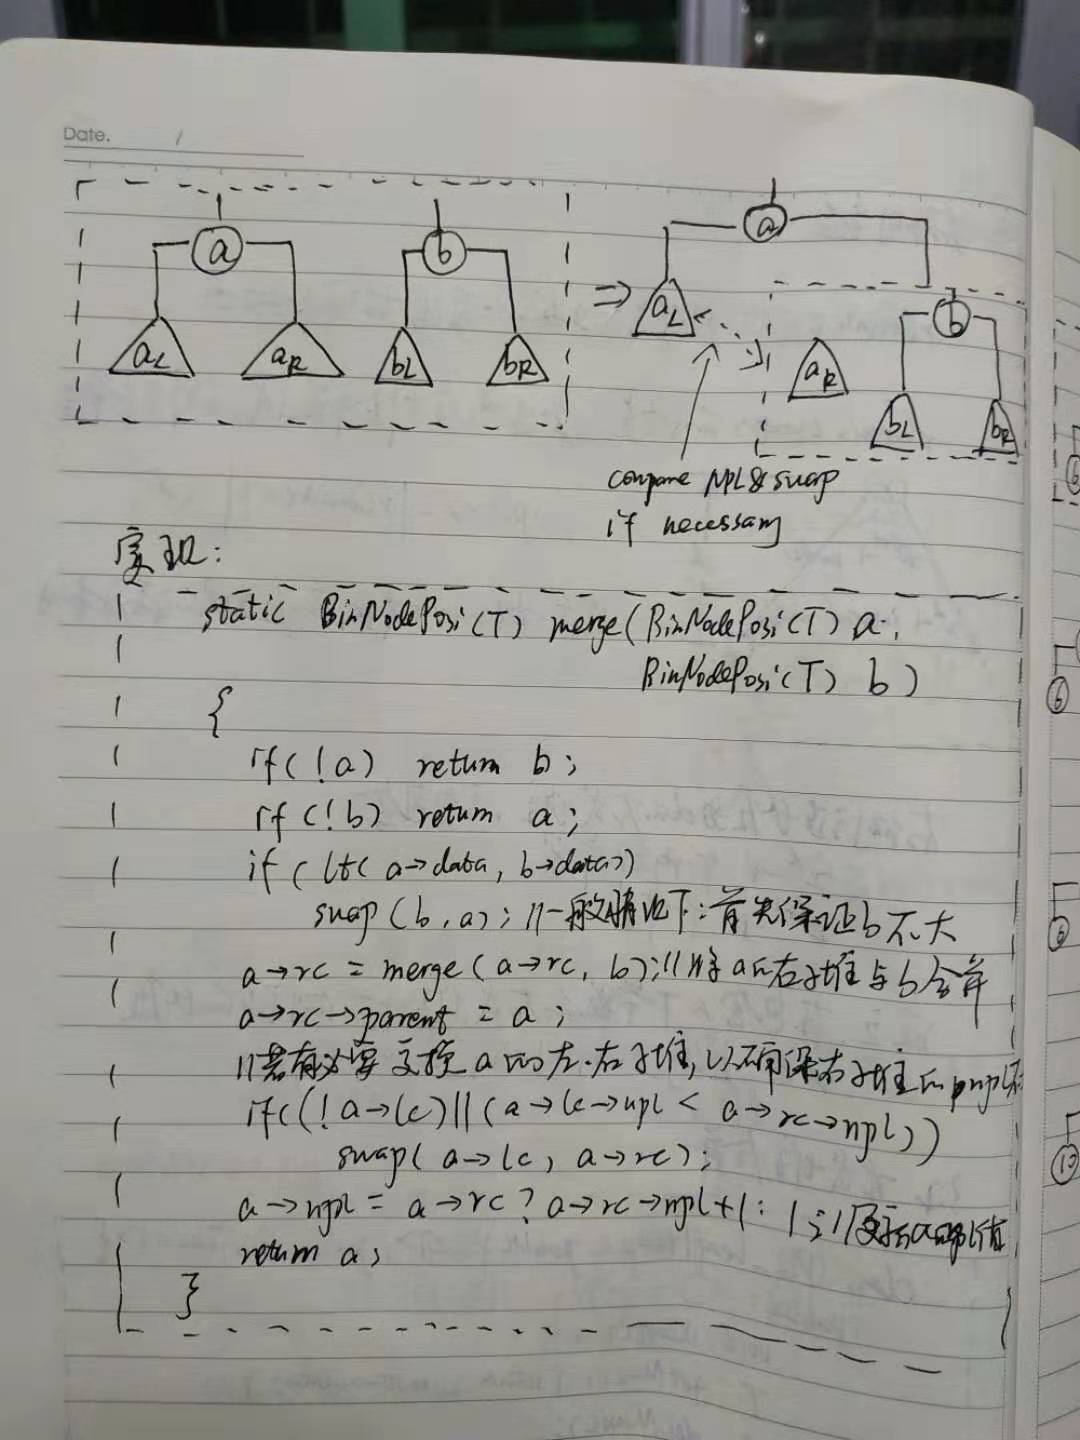 Date. /
a b a
aL aR bL bR aL b
aR bL bR
compare NPL & swap
if necessary
实现:
static BinNodePosi(T) merge(BinNodePosi(T) a,
BinNodePosi(T) b)
{
if(!a) return b;
if(!b) return a;
if(lt(a→data, b→data))
swap(b,a); //一般情况下:首先保证b不大
a→rc = merge(a→rc, b); //将a的右子堆与b合并
a→rc→parent = a;
//若有必要交换a的左、右子堆,以确保右子堆的npl不
if((!a→lc)||(a→lc→npl < a→rc→npl))
swap(a→lc, a→rc);
a→npl = a→rc ? a→rc→npl+1 : 1; //更新a的npl值
return a;
}
6
6
10